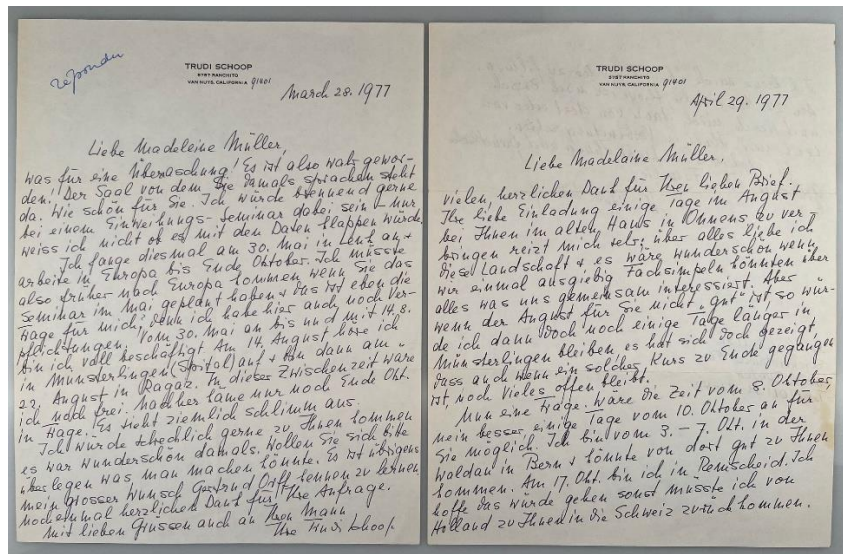 repondu
TRUDI SCHOOP
5157 RANCHITO
VAN NUYS, CALIFORNIA 91401
March 28. 1977
Liebe Madeleine Müller,
was für eine Überaschung! Es ist also wahr gewor-
den! Der Saal von dem Sie damals sprachen steht
da. Wie schön für Sie. Ich würde brennend gerne
bei einem Einweihungs-Seminar dabei sein – nur
weiss ich nicht ob es mit den Daten klappen würde.
Ich fange diesmal am 30. Mai in an +
arbeite in Europa bis Ende Oktober. Ich müsste
also früher nach Europa kommen wenn Sie das
Seminar im Mai geplant haben + das ist eben die
Frage für mich, denn ich habe hier auch noch Ver-
pflichtungen. Vom 30. Mai an bis und mit 14. 8.
bin ich voll beschäftigt. Am 14. August höre ich
in Münsterlingen (Spital) auf + bin dann am
22. August in Ragaz. In dieser Zwischenzeit wäre
ich noch frei. Nachher käme nur noch Ende Okt.
in Frage. Es sieht ziemlich schlimm aus.
Ich würde schrecklich gerne zu Ihnen kommen
es war wunderschön damals. Wollen Sie sich bitte
überlegen was man machen könnte. Es ist übrigens
mein grosser Wunsch Gertrud Orff kennen zu lernen
Noch einmal herzlichen Dank für Ihre Anfrage.
Mit lieben Grüssen auch an Ihren Mann
Ihre Trudi Schoop
TRUDI SCHOOP
5157 RANCHITO
VAN NUYS, CALIFORNIA 91401
April 29. 1977
Liebe Madelaine Müller,
vielen, herzlichen Dank für Ihren lieben Brief.
Ihre liebe Einladung einige Tage im August
bei Ihnen im alten Haus in Onnens zu ver-
bringen reizt mich sehr; über alles liebe ich
diese Landschaft + es wäre wunderschön wenn
wir einmal ausgiebig Fachsimpeln könnten über
alles was uns gemeinsam interessiert. Aber
wenn der August für Sie nicht „gut" ist so wür-
de ich dann doch noch einige Tage länger in
Münsterlingen bleiben es hat sich doch gezeigt
dass auch wenn ein solcher Kurs zu Ende gegangen
ist noch Vieles offen bleibt.
Nun eine Frage. Wäre die Zeit vom 8. Oktober,
nein besser einige Tage vom 10. Oktober an für
Sie möglich. Ich bin vom 3. – 7. Okt. in der
Waldau in Bern + könnte von dort gut zu Ihnen
kommen. Am 17. Okt. bin ich in Remscheid. Ich
hoffe das würde gehen sonst müsste ich von
Holland zu Ihnen in die Schweiz zurück kommen.